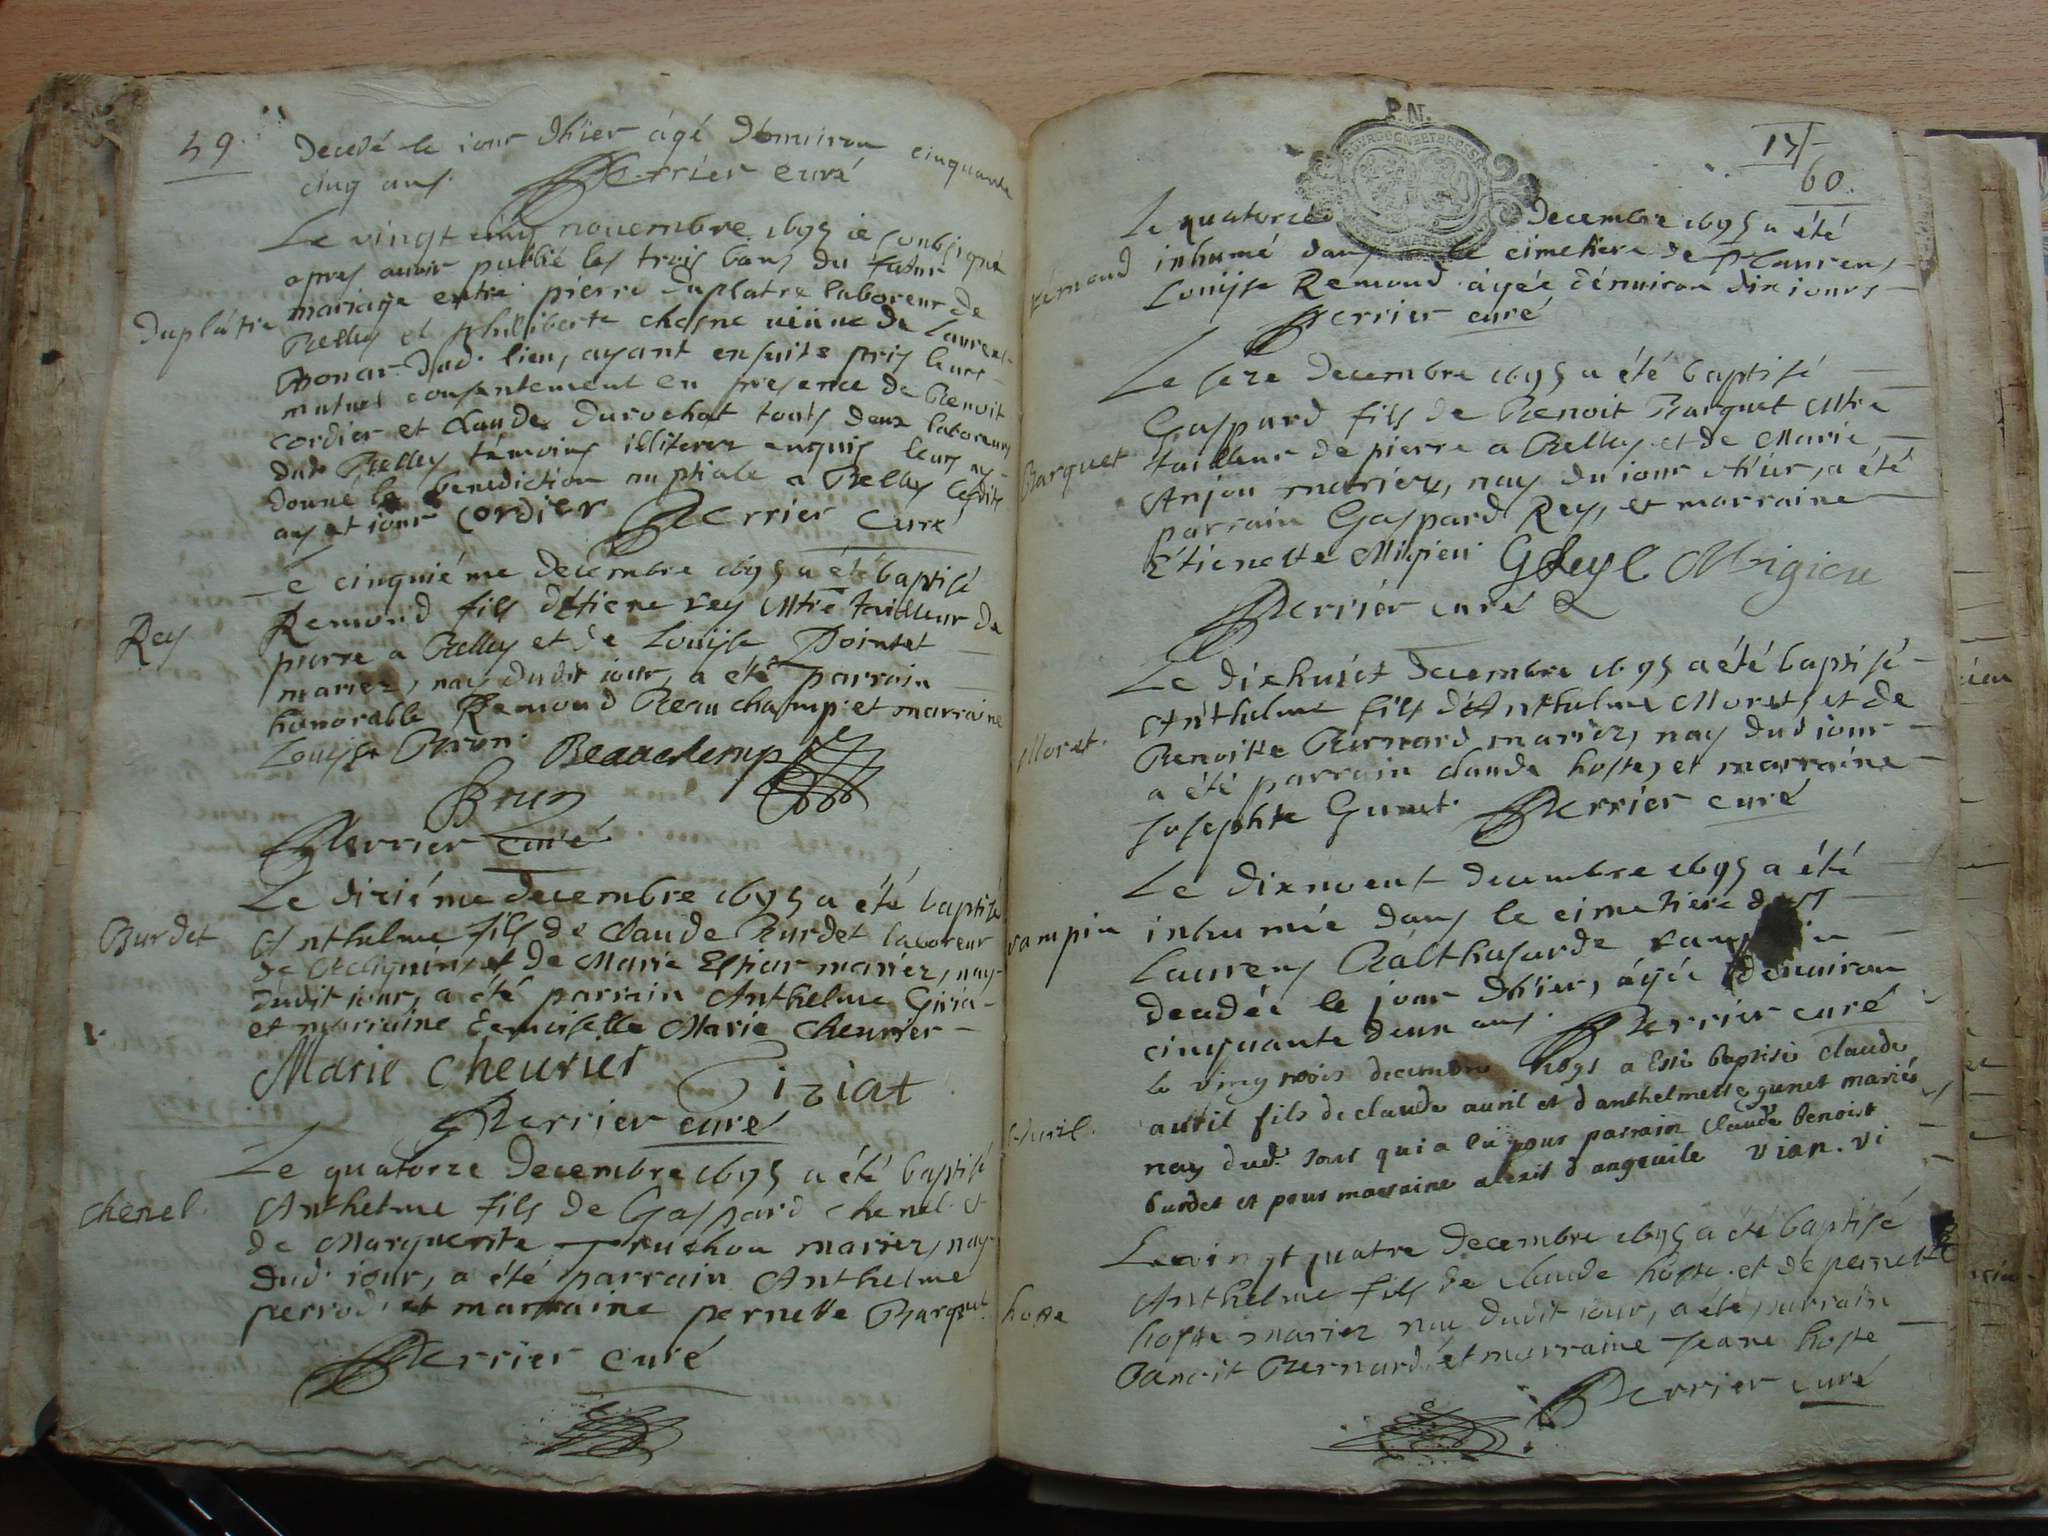 59.
decedé le iour d'hier âgé d'enuiron cinquante
cinq ans. Perrier curé
Le vingt cinq nouembre 1695 ie soubsigné
apres auoir publié les trois bans du futur
mariage entre pierre duplatre laboreur de
Duplatre
Belley et philiberte chesne veüue de Laurens
dud. lieu, ayant ensuite pris leurs
mutuel consentement en presence de Benoit
cordier et claude durochat touts deux laboreurs
dud. Belley témoins illiterez enquis leurs ay
donné la benediction nuptiale a Belley lesdits
an et iour cordier Perrier curé
Le cinquiéme decembre 1695 a été baptisé
Remond fils d'étiene rey Mtre tailleur de
Rey
pierre a Belley et de Louyse Pointet
mariez, nay dudit iour, a été parrain
honorable Remond Beauchamp et marraine
Louyse Brun. Beauchemp
Brun
Perrier curé
Le diziéme decembre 1695 a été baptisé
Burdet
Anthelme fils de claude Burdet laboreur
de et de Marie mariez, nay
dudit iour, a été parrain Anthelme Giria
et marraine demoiselle Marie Cheurier
Marie cheurier Giriat
Perrier curé
Le quatorze Decembre 1695 a été baptisé
chenel.
Anthelme fils de Gaspard chenel et
de Marguerite Truchon mariez, nay
dud. iour, a été parrain Anthelme
perrod et marraine pernette Barquet.
Perrier curé
P. N.
60.
Le quatorze Decembre 1695 a été
remond
inhumé dans le cimetiere de st Laurens
Louyse Remond âgée d'énuiron dix iours
Perrier curé
Le seze decembre 1695 a été baptisé
Gaspard fils de Benoit Barquet Mtre
Barquet
tailleur de pierre a Belley et de Marie
Anjou mariez, nay du iour d'hier, a été
parrain Gaspard Rey, et marraine
Etienette Migieu. G Rey E Migieu
Perrier curé
Le dixhuict decembre 1695 a été baptisé
Anthelme fils d'Anthelme Moret, et de
Moret.
Benoitte Bernard mariez, nay dud iour
a été parrain claude hoste, et marraine
Josephte Gunet. Perrier curé
Le dixneuf decembre 1695 a été
rampin
inhumée dans le cimetiere de St
Laurens Balthasarde
decedée le jour d'hier, âgée d'enuiron
cinquante deux ans. Perrier curé
le vingtrois decembre 1695 a esté baptisé claude
Auril.
auril fils de claude auril et d'anthelmette gunet mariés
nay dud. iour qui a eu pour parrain claude benoist
burdet et pour marraine alexis d'angeuile vian. vi
Le vingt quatre decembre 1695 a été baptisé
Anthelme fils de claude hoste et de pernette
hoste
hoste mariez nay dudit iour, a été parrain
Benoit Bernard et marraine Jeane hoste
Perrier curé